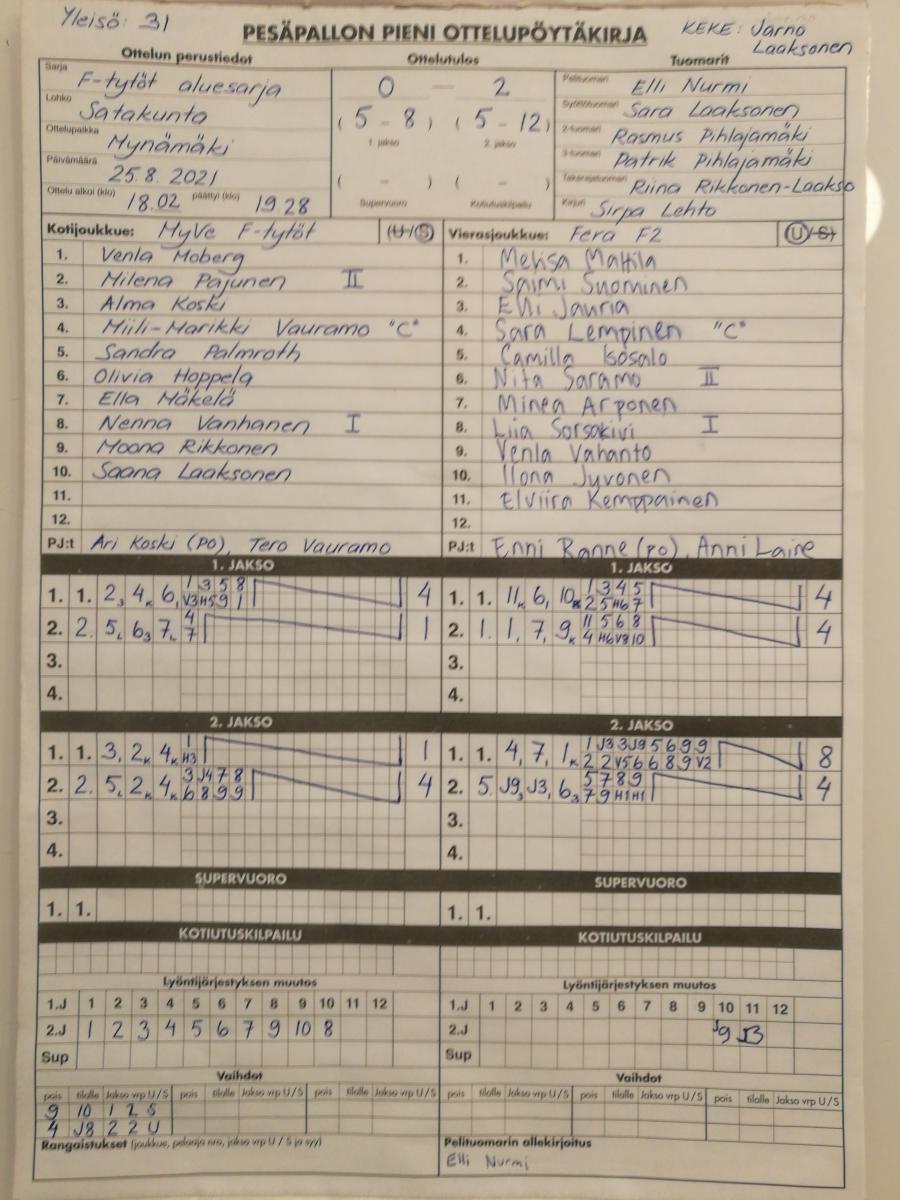 Yleisö: 31
PESÄPALLON PIENI OTTELUPÖYTÄKIRJA
KEKE: Jarno Laaksonen
Ottelun perustiedot
Ottelutulos
Tuomarit
Sarja F-tytöt aluesarja
Lohko Satakunta
Ottelupaikka Mynämäki
Päivämäärä 25.8.2021
Ottelu alkoi (klo) 18.02 päättyi (klo) 19 28
0 – 2
(5 – 8) (5 – 12)
1. jakso 2. jakso
( – ) ( – )
Supervuoro Kotiutuskilpailu
Pelituomari Elli Nurmi
Syöttötuomari Sara Laaksonen
2-tuomari Rasmus Pihlajamäki
3-tuomari Patrik Pihlajamäki
Takarajatuomari Riina Rikkonen-Laakso
Kirjuri Sirpa Lehto
Kotijoukkue: MyVe F-tytöt (U/S)
1. Venla Moberg
2. Milena Pajunen II
3. Alma Koski
4. Miili-Marikki Vauramo "C"
5. Sandra Palmroth
6. Olivia Hoppela
7. Ella Mäkelä
8. Nenna Vanhanen I
9. Moona Rikkonen
10. Saana Laaksonen
11.
12.
PJ:t Ari Koski (PO), Tero Vauramo
Vierasjoukkue: Fera F2 (U/S)
1. Melisa Mattila
2. Saimi Suominen
3. Elli Jauria
4. Sara Lempinen "C"
5. Camilla Isosalo
6. Nita Saramo II
7. Minea Arponen
8. Liia Sorsakivi I
9. Venla Vahanto
10. Ilona Jyvonen
11. Elviira Kemppainen
12.
PJ:t Enni Ranne (po), Anni Laine
1. JAKSO
1. 1. 2, 4, 6, 1 3 5 8 4
V3 H5 9 1
2. 2. 5, 6, 7, 4 1
7
3.
4.
1. JAKSO
1. 1. 11, 6, 10, 1 3 4 5 4
2 5 H6 7
2. 1. 1, 7, 9, 11 5 6 8 4
4 H6 V8 10
3.
4.
2. JAKSO
1. 1. 3, 2, 4, 1 1
H3
2. 2. 5, 2, 4, 3 J4 7 8 4
6 8 9 9
3.
4.
2. JAKSO
1. 1. 4, 7, 1, 1 J3 3 J9 5 6 9 9 8
2 2 V5 6 6 8 9 V2
2. 5. J9, J3, 6, 5 7 8 9 4
7 9 H1 H1
3.
4.
SUPERVUORO
1. 1.
SUPERVUORO
1. 1.
KOTIUTUSKILPAILU
KOTIUTUSKILPAILU
Lyöntijärjestyksen muutos
1.J 1 2 3 4 5 6 7 8 9 10 11 12
2.J 1 2 3 4 5 6 7 9 10 8
Sup
Lyöntijärjestyksen muutos
1.J 1 2 3 4 5 6 7 8 9 10 11 12
2.J J9 J3
Sup
Vaihdot
pois tilalle Jakso vrp U/S pois tilalle Jakso vrp U/S pois tilalle Jakso vrp U/S
9 10 1 2 S
4 J8 2 2 U
Vaihdot
pois tilalle Jakso vrp U/S pois tilalle Jakso vrp U/S pois tilalle Jakso vrp U/S
Rangaistukset (joukkue, pelaaja nro, jakso vrp U / S ja syy)
Pelituomarin allekirjoitus
Elli Nurmi